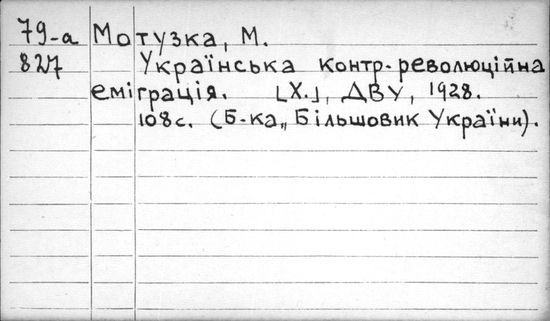 79-а Мотузка, М.
827 Українська контр-революційна
еміграція. [Х.], ДВУ, 1928.
108 с. (Б-ка „Більшовик України).